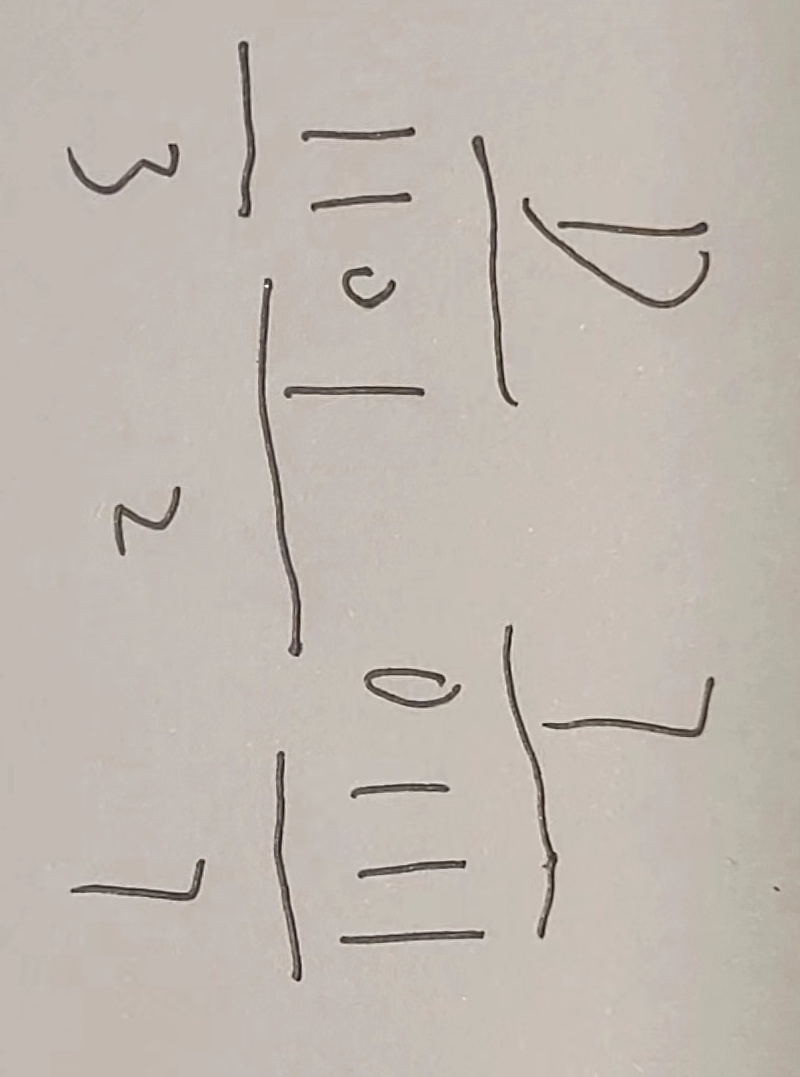 D 7
1101 0111
3 2 7